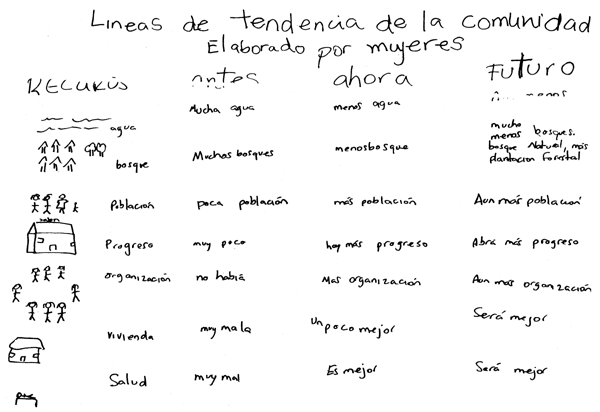 Lineas de tendencia de la comunidad
Elaborado por mujeres
antes ahora Futuro
agua Mucha agua menos agua
bosque Muchos bosques menos bosque mucho menos bosques. bosque Natural, más plantacion Forestal
Población poca población más población Aun más población
Progreso muy poco hay más progreso Abrá más progreso
organización no había Mas organización Aun mas organización
vivienda muy mala Un poco mejor Será mejor
Salud muy mal Es mejor Será mejor